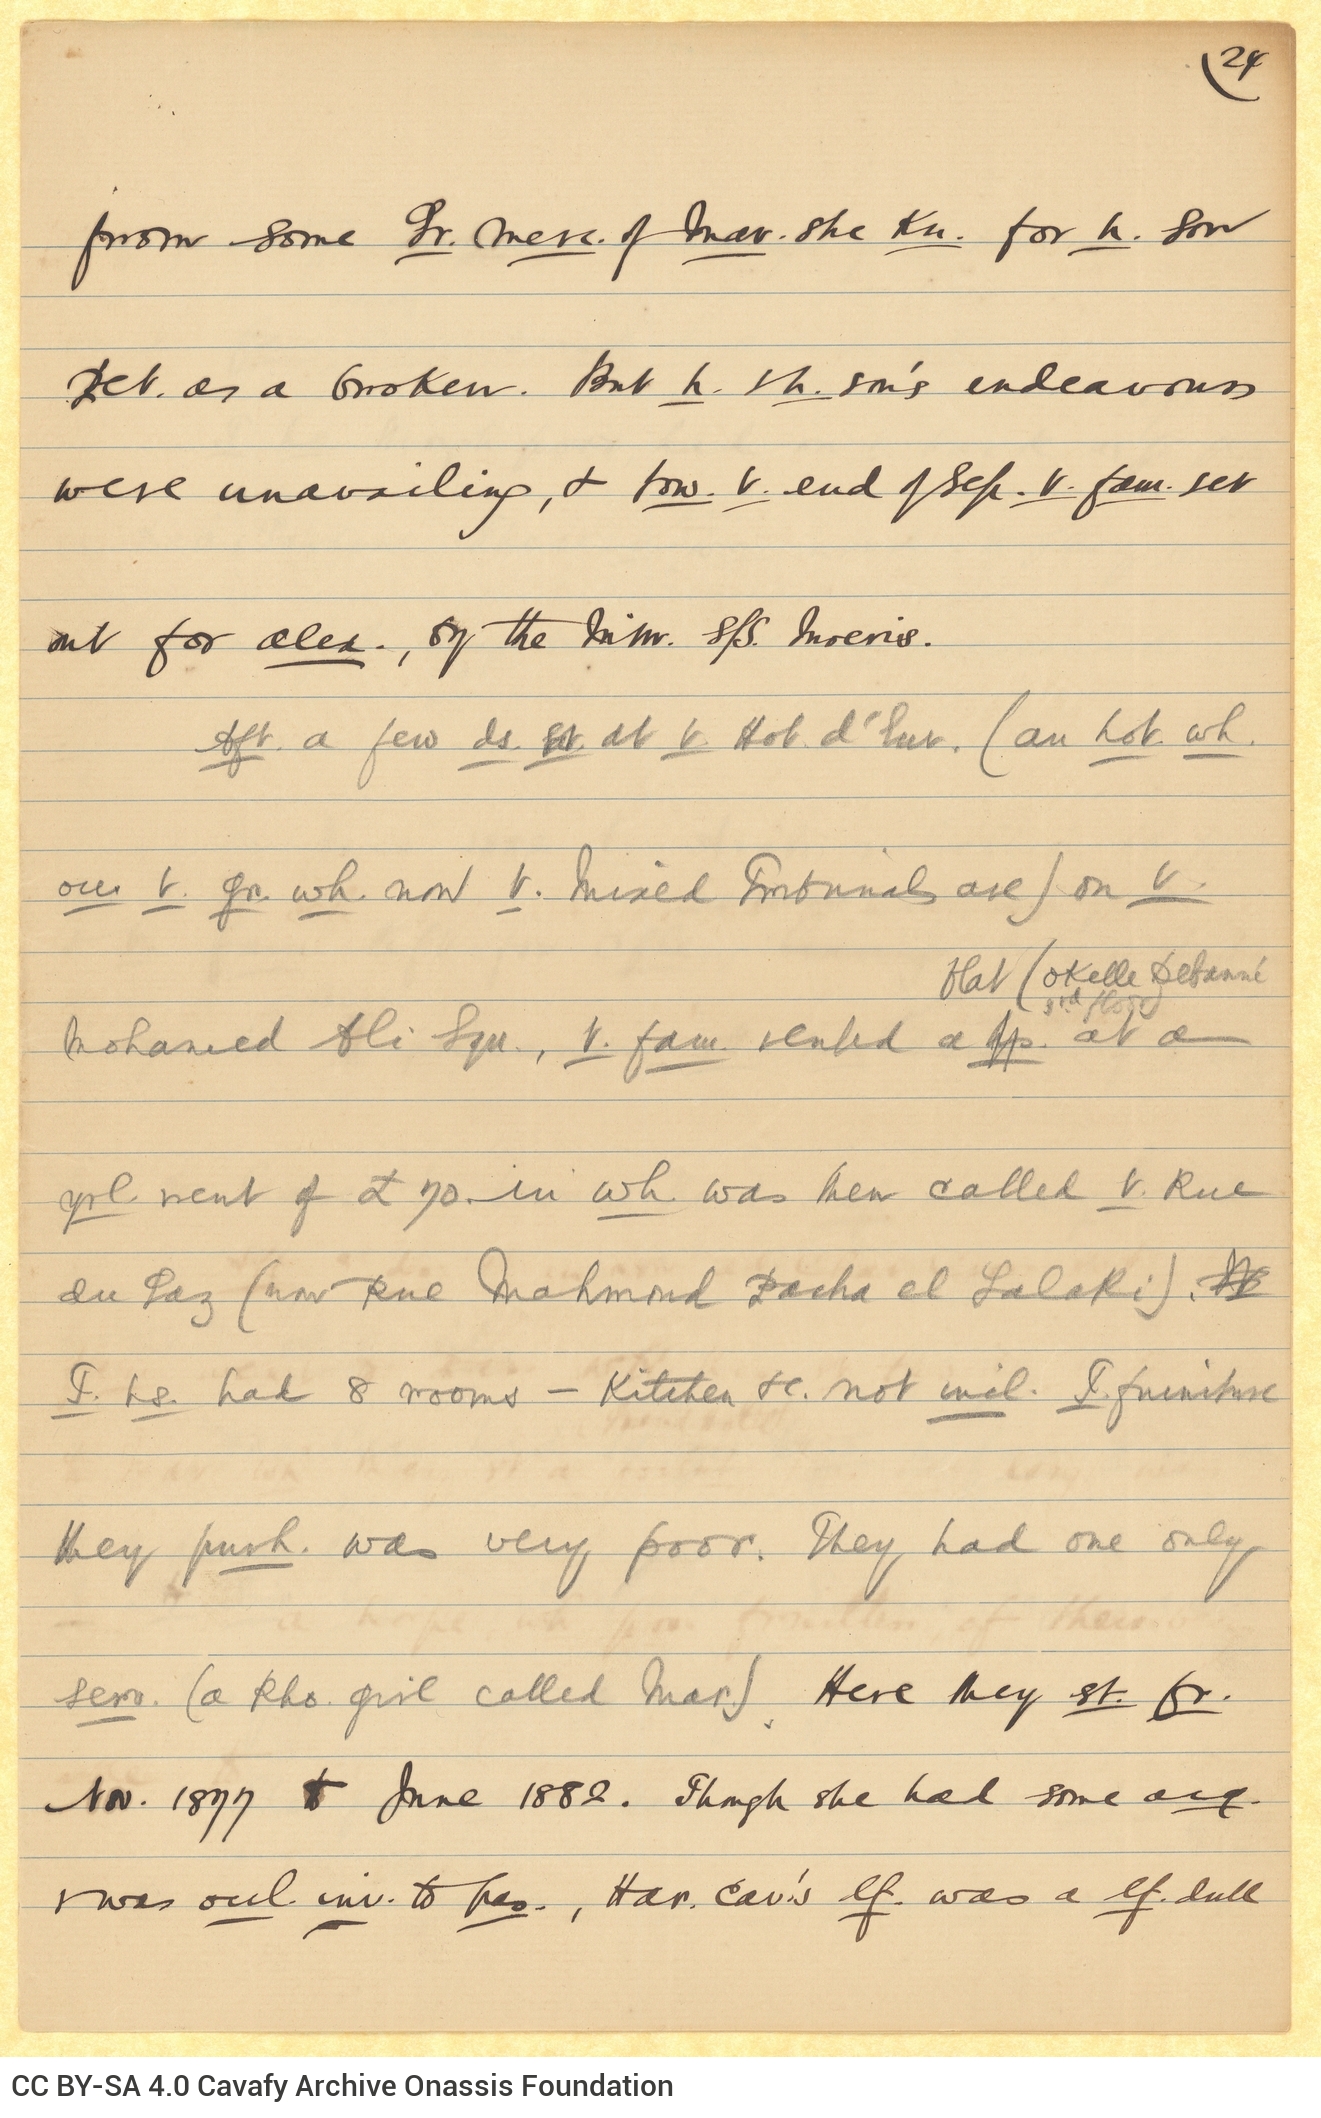 24
from some Gr. merc. of Mar. she kn. for h. son
Pet. as a broker. But h. & h. son's endeavours
were unavailing, & tow. t. end of Sep. t. fam. set
out for Alex., by the M'mr. S/S. Moeris.
Aft. a few ds. st. at t. Hot. d'Eur. (an hot. wh.
occ. t. gr. wh. now t. Mixed Tribunals are) on t.
flat (Okelle Debanné
3rd floor)
Mohamed Ali Squ., t. fam. rented a Ap. at a
yrl. rent of £ 70. in wh. was then called t. Rue
du Gaz (now Rue Mahmoud Pacha el Falaki).
T. hs. had 8 rooms – kitchen &c. not incl. T. furniture
they purch. was very poor. They had one only
serv. (a Rho. girl called Mar.). Here they st. fr.
Nov. 1877 to June 1882. Though she had some acq.
& was occl. inv. to pas., Har. Cav.'s lf. was a lf. dull
CC BY-SA 4.0 Cavafy Archive Onassis Foundation